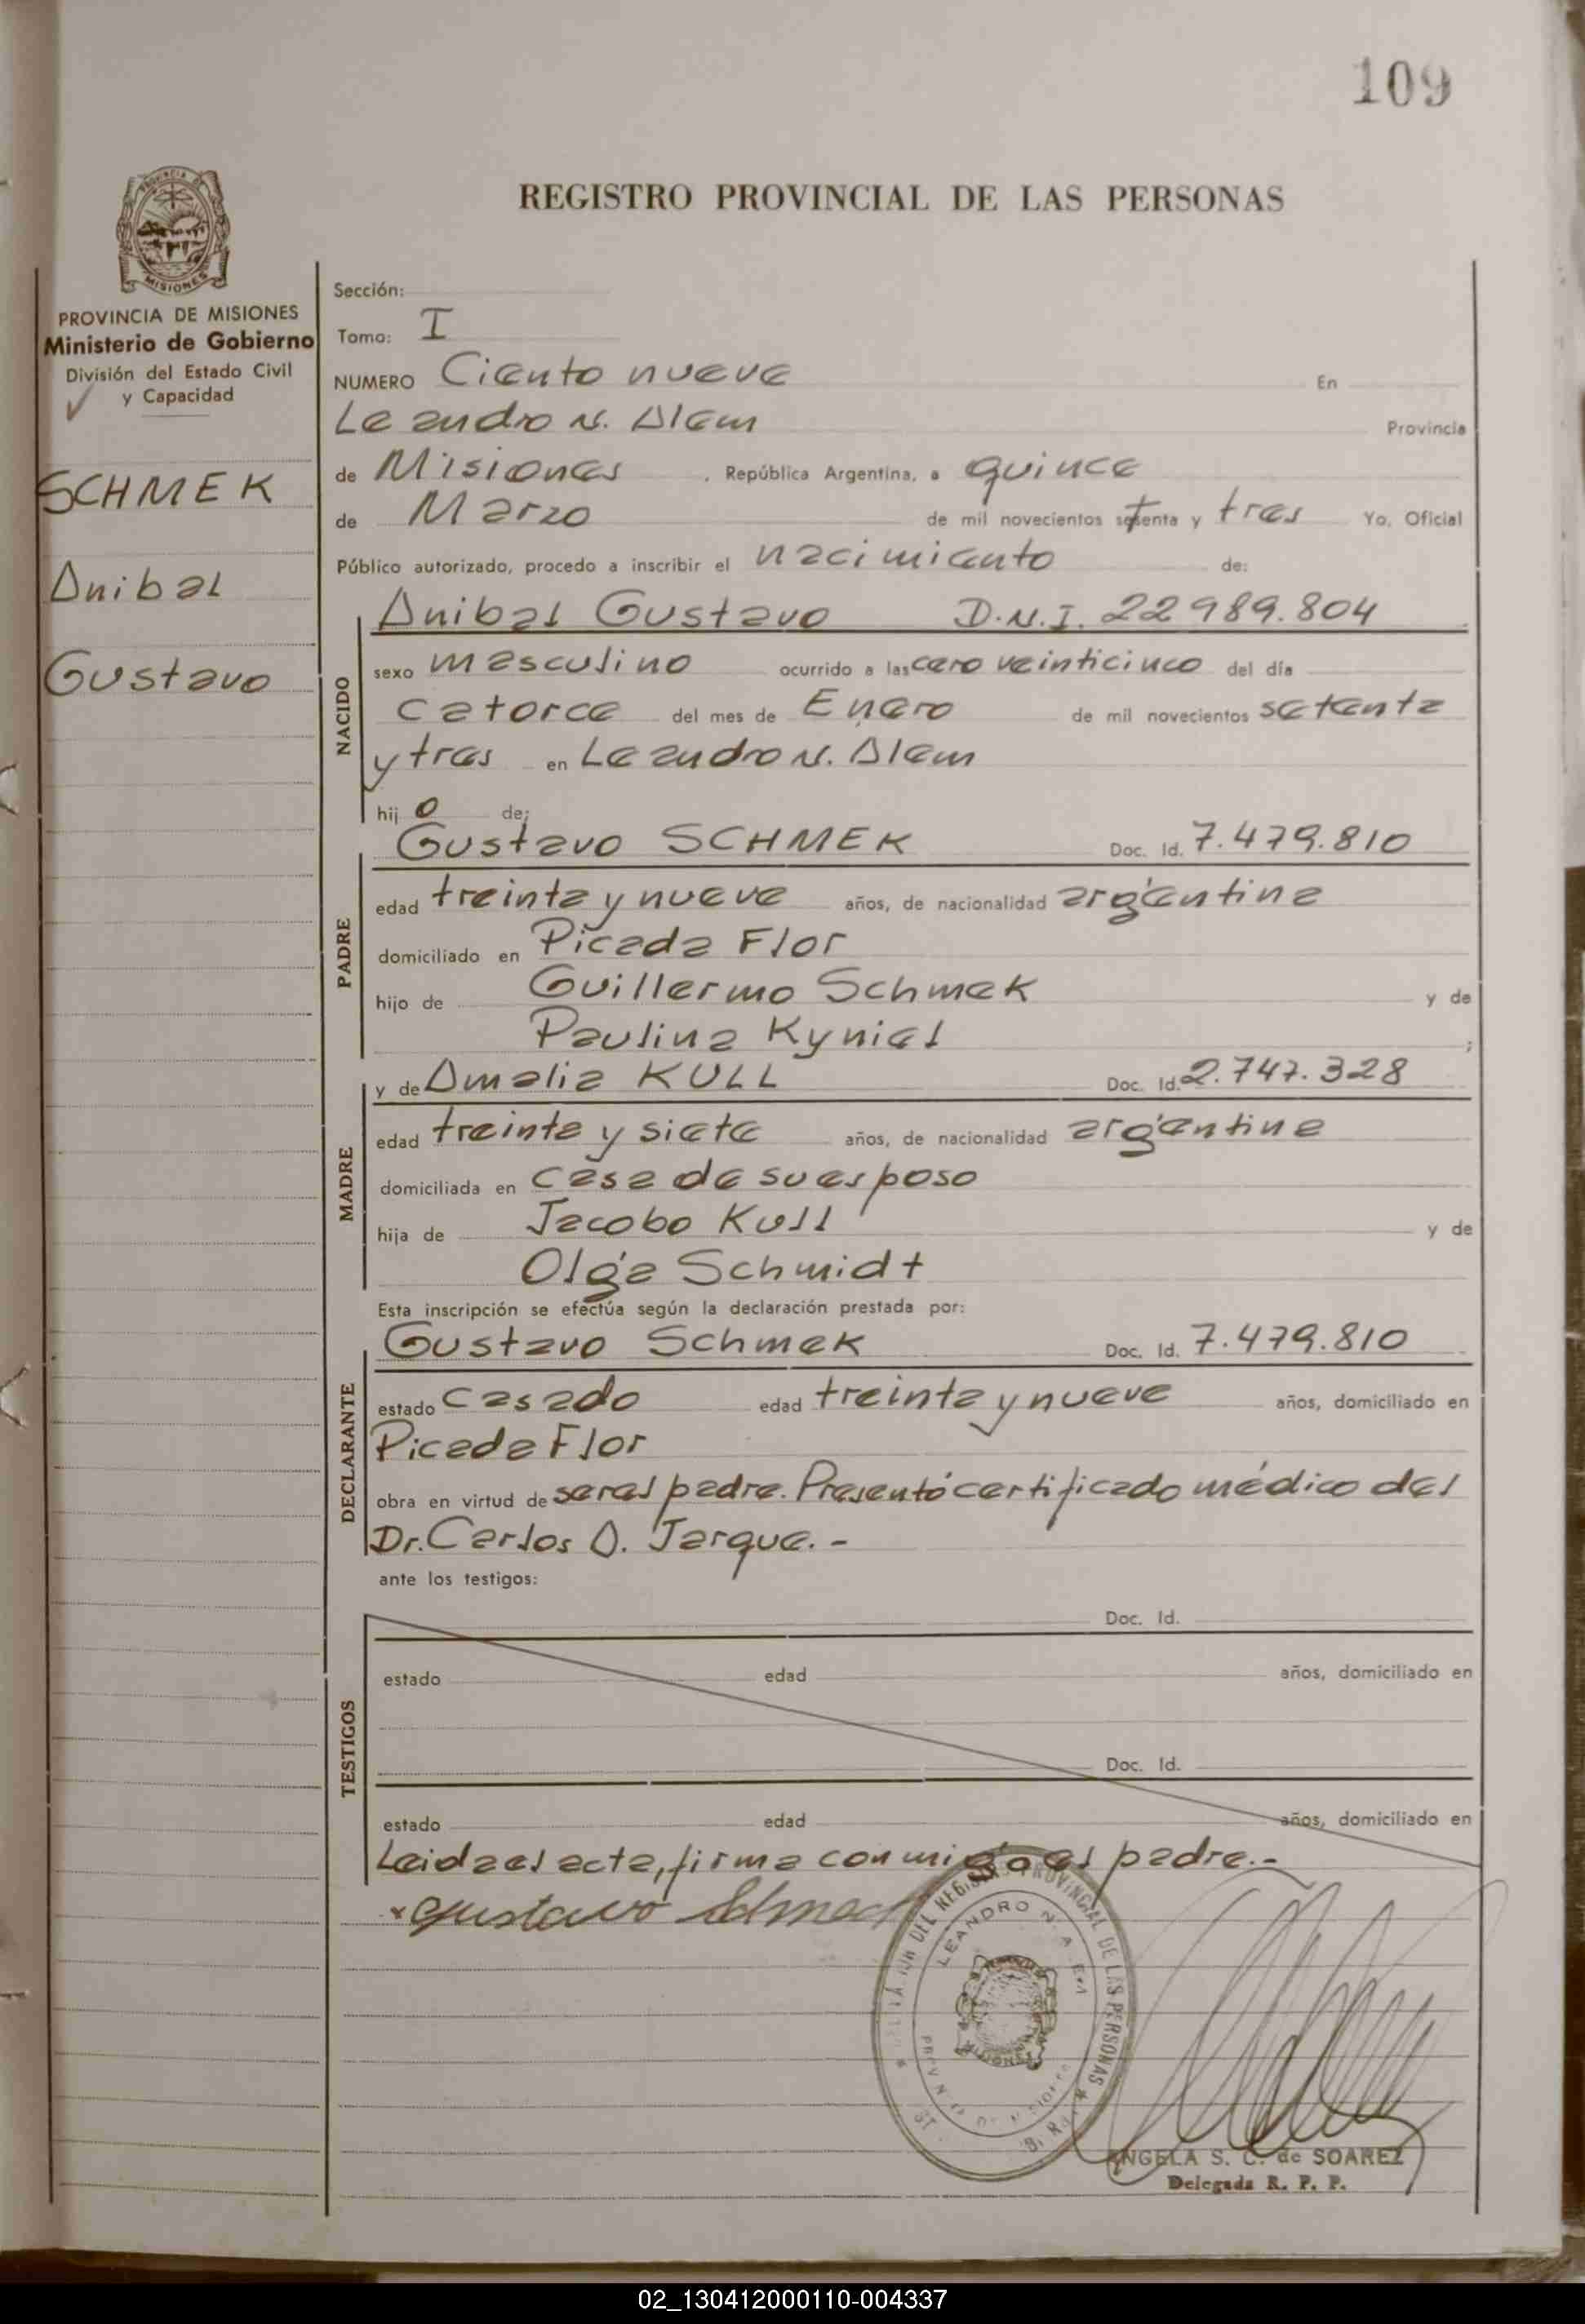 109
REGISTRO PROVINCIAL DE LAS PERSONAS
PROVINCIA DE MISIONES
Ministerio de Gobierno
División del Estado Civil
y Capacidad
SCHMEK
Anibal
Gustavo
Sección:
Tomo: I
NUMERO Ciento nueve En
Leandro N. Alem Provincia
de Misiones , República Argentina, a quince
de Marzo de mil novecientos setenta y tres Yo, Oficial
Público autorizado, procedo a inscribir el nacimiento de:
Anibal Gustavo D.N.I. 22989.804
NACIDO
sexo masculino ocurrido a las cero veinticinco del día
catorce del mes de Enero de mil novecientos setenta
y tres en Leandro N. Alem
hij o de:
Gustavo SCHMEK Doc. Id. 7.479.810
PADRE
edad treinta y nueve años, de nacionalidad argentina
domiciliado en Picada Flor
hijo de Guillermo Schmek y de
Paulina Kyniel ;
y de Amalia KULL Doc. Id. 2.747.328
MADRE
edad treinta y siete años, de nacionalidad argentina
domiciliada en casa de su esposo
hija de Jacobo Kull y de
Olga Schmidt
Esta inscripción se efectúa según la declaración prestada por:
Gustavo Schmek Doc. Id. 7.479.810
DECLARANTE
estado casado edad treinta y nueve años, domiciliado en
Picada Flor
obra en virtud de ser el padre. Presentó certificado médico del
Dr. Carlos A. Jarque. -
ante los testigos:
TESTIGOS
Doc. Id.
estado edad años, domiciliado en
Doc. Id.
estado edad años, domiciliado en
Leida el acta, firma conmigo el padre.-
Gustavo Schmek
DEL REGISTRO PROVINCIAL DE LAS PERSONAS
LEANDRO N. ALEM
MISIONES
ANGELA S. C. de SOAREZ
Delegada R. P. P.
02_130412000110-004337